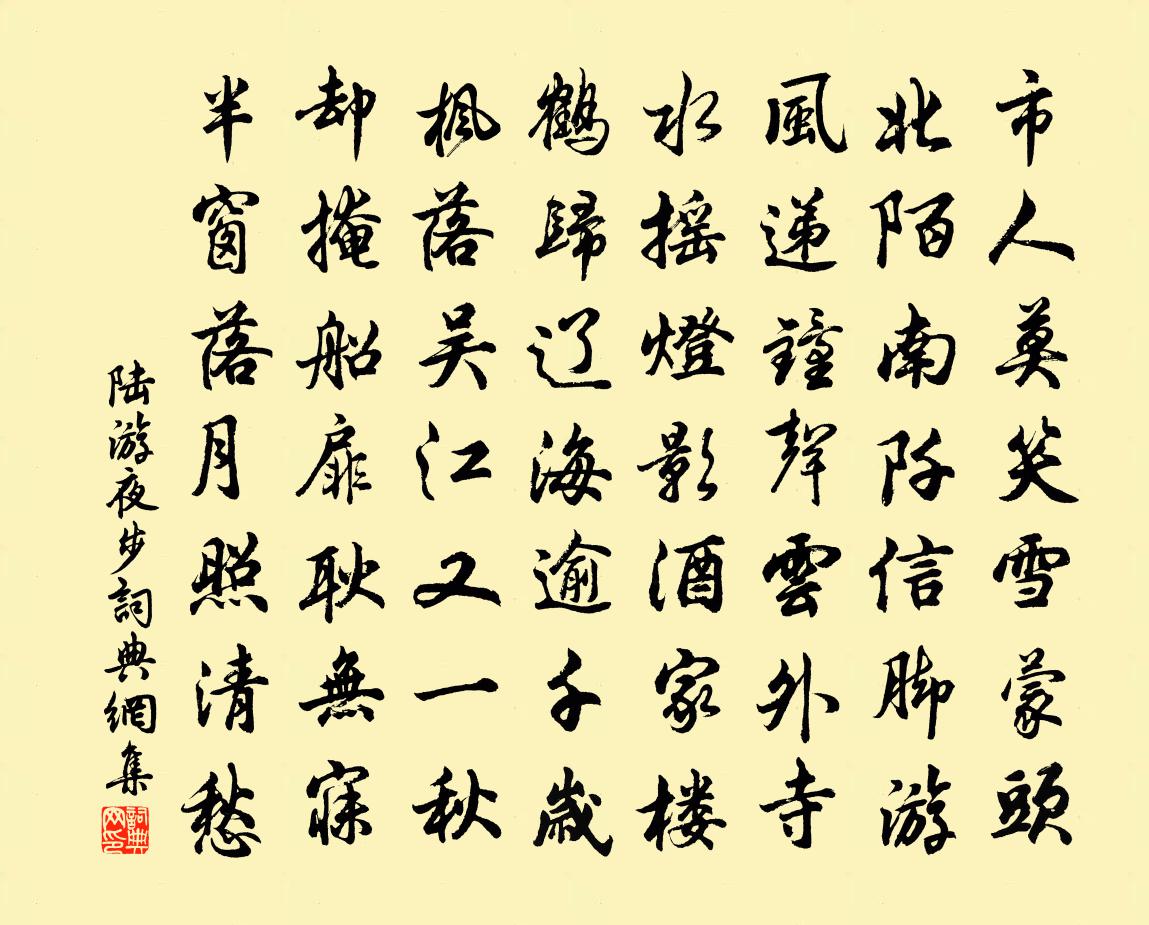 市人莫笑雪蒙頭
北陌南阡信脚游
風递鐘聲雲外寺
水摇燈影酒家楼
鶴歸辽海逾千歳
枫落吴江又一秋
却掩船扉耿無寐
半窗落月照清愁
陆游夜步詞典網集
詞典网印